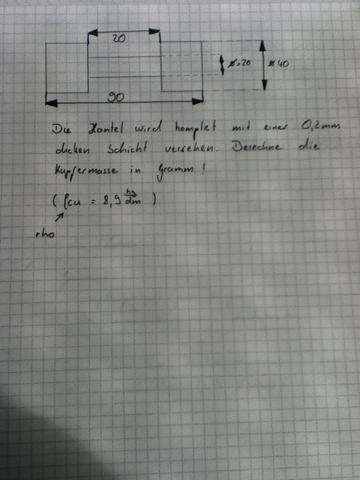 20
ø 20
ø 40
90
Die Hantel wird komplett mit einer 0,2mm
dicken Schicht versehen. Berechne die
Kupfermasse in Gramm!
(ρcu = 8,9 kg/dm )
rho